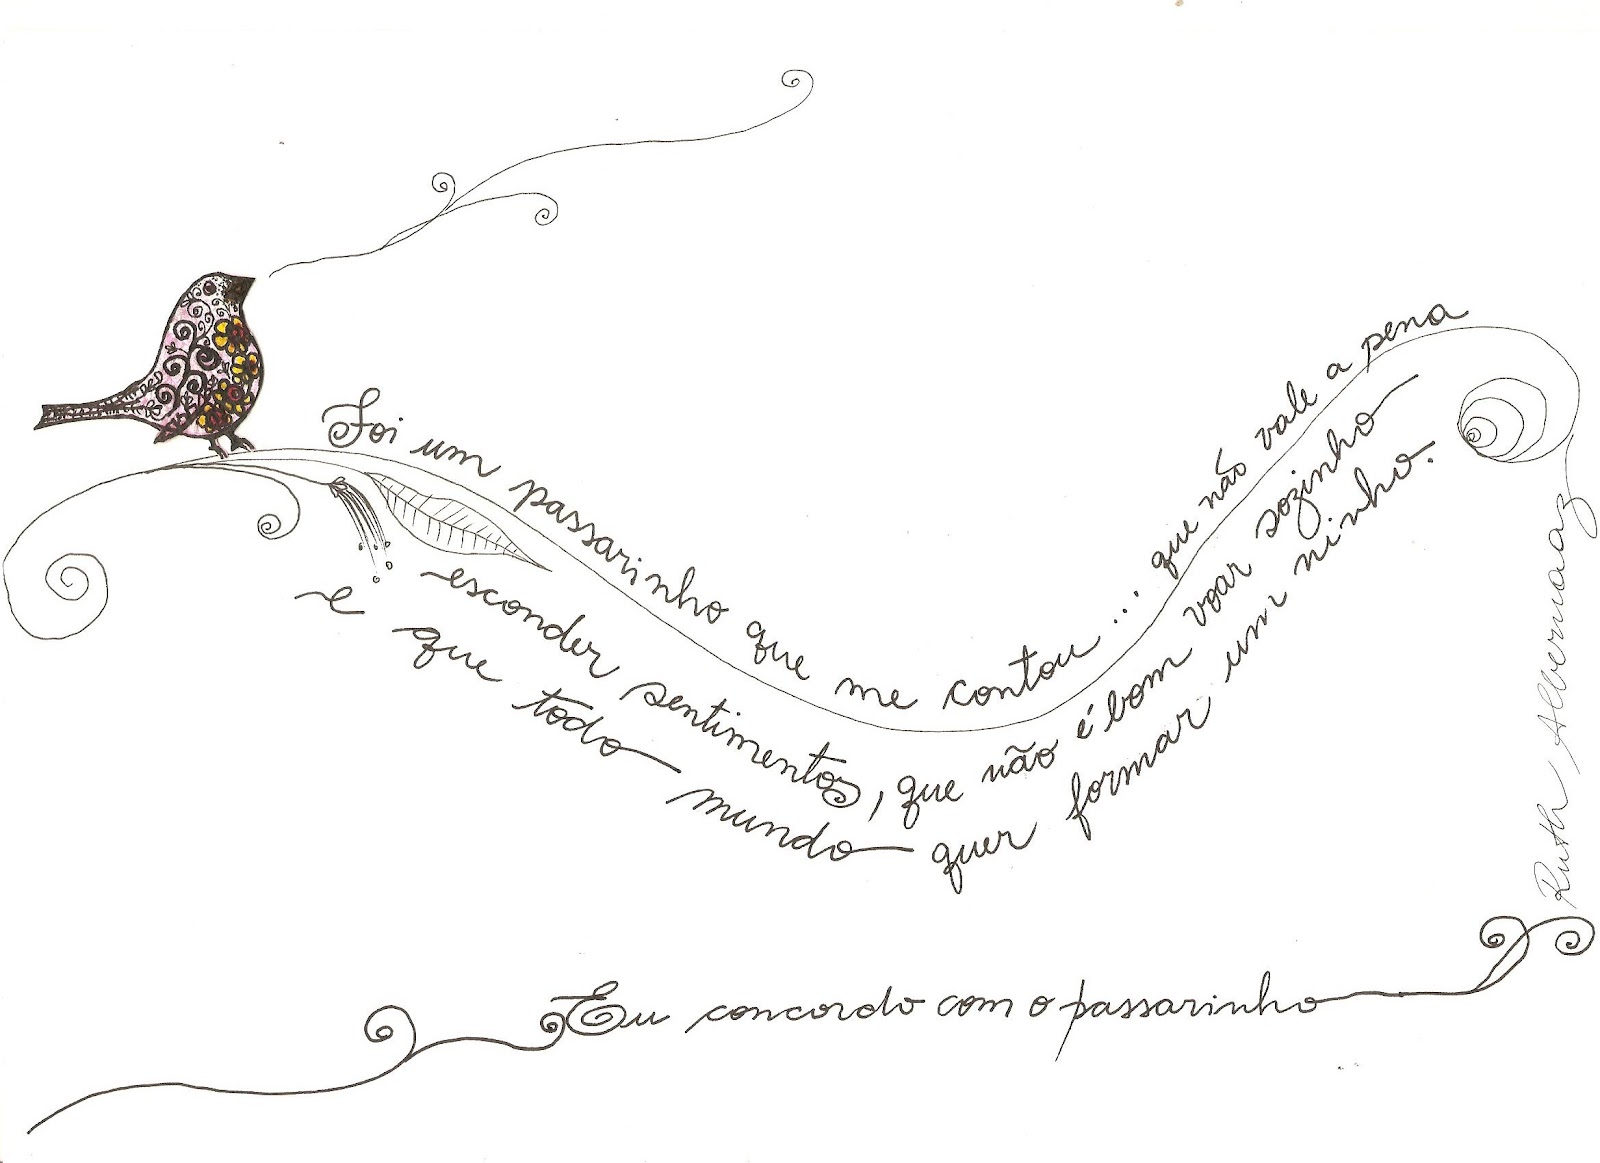 Foi um passarinho que me contou... que não vale a pena
esconder sentimentos, que não é bom voar sozinho
e que todo mundo quer formar um ninho.
Ruth Albernaaz
Eu concordo com o passarinho